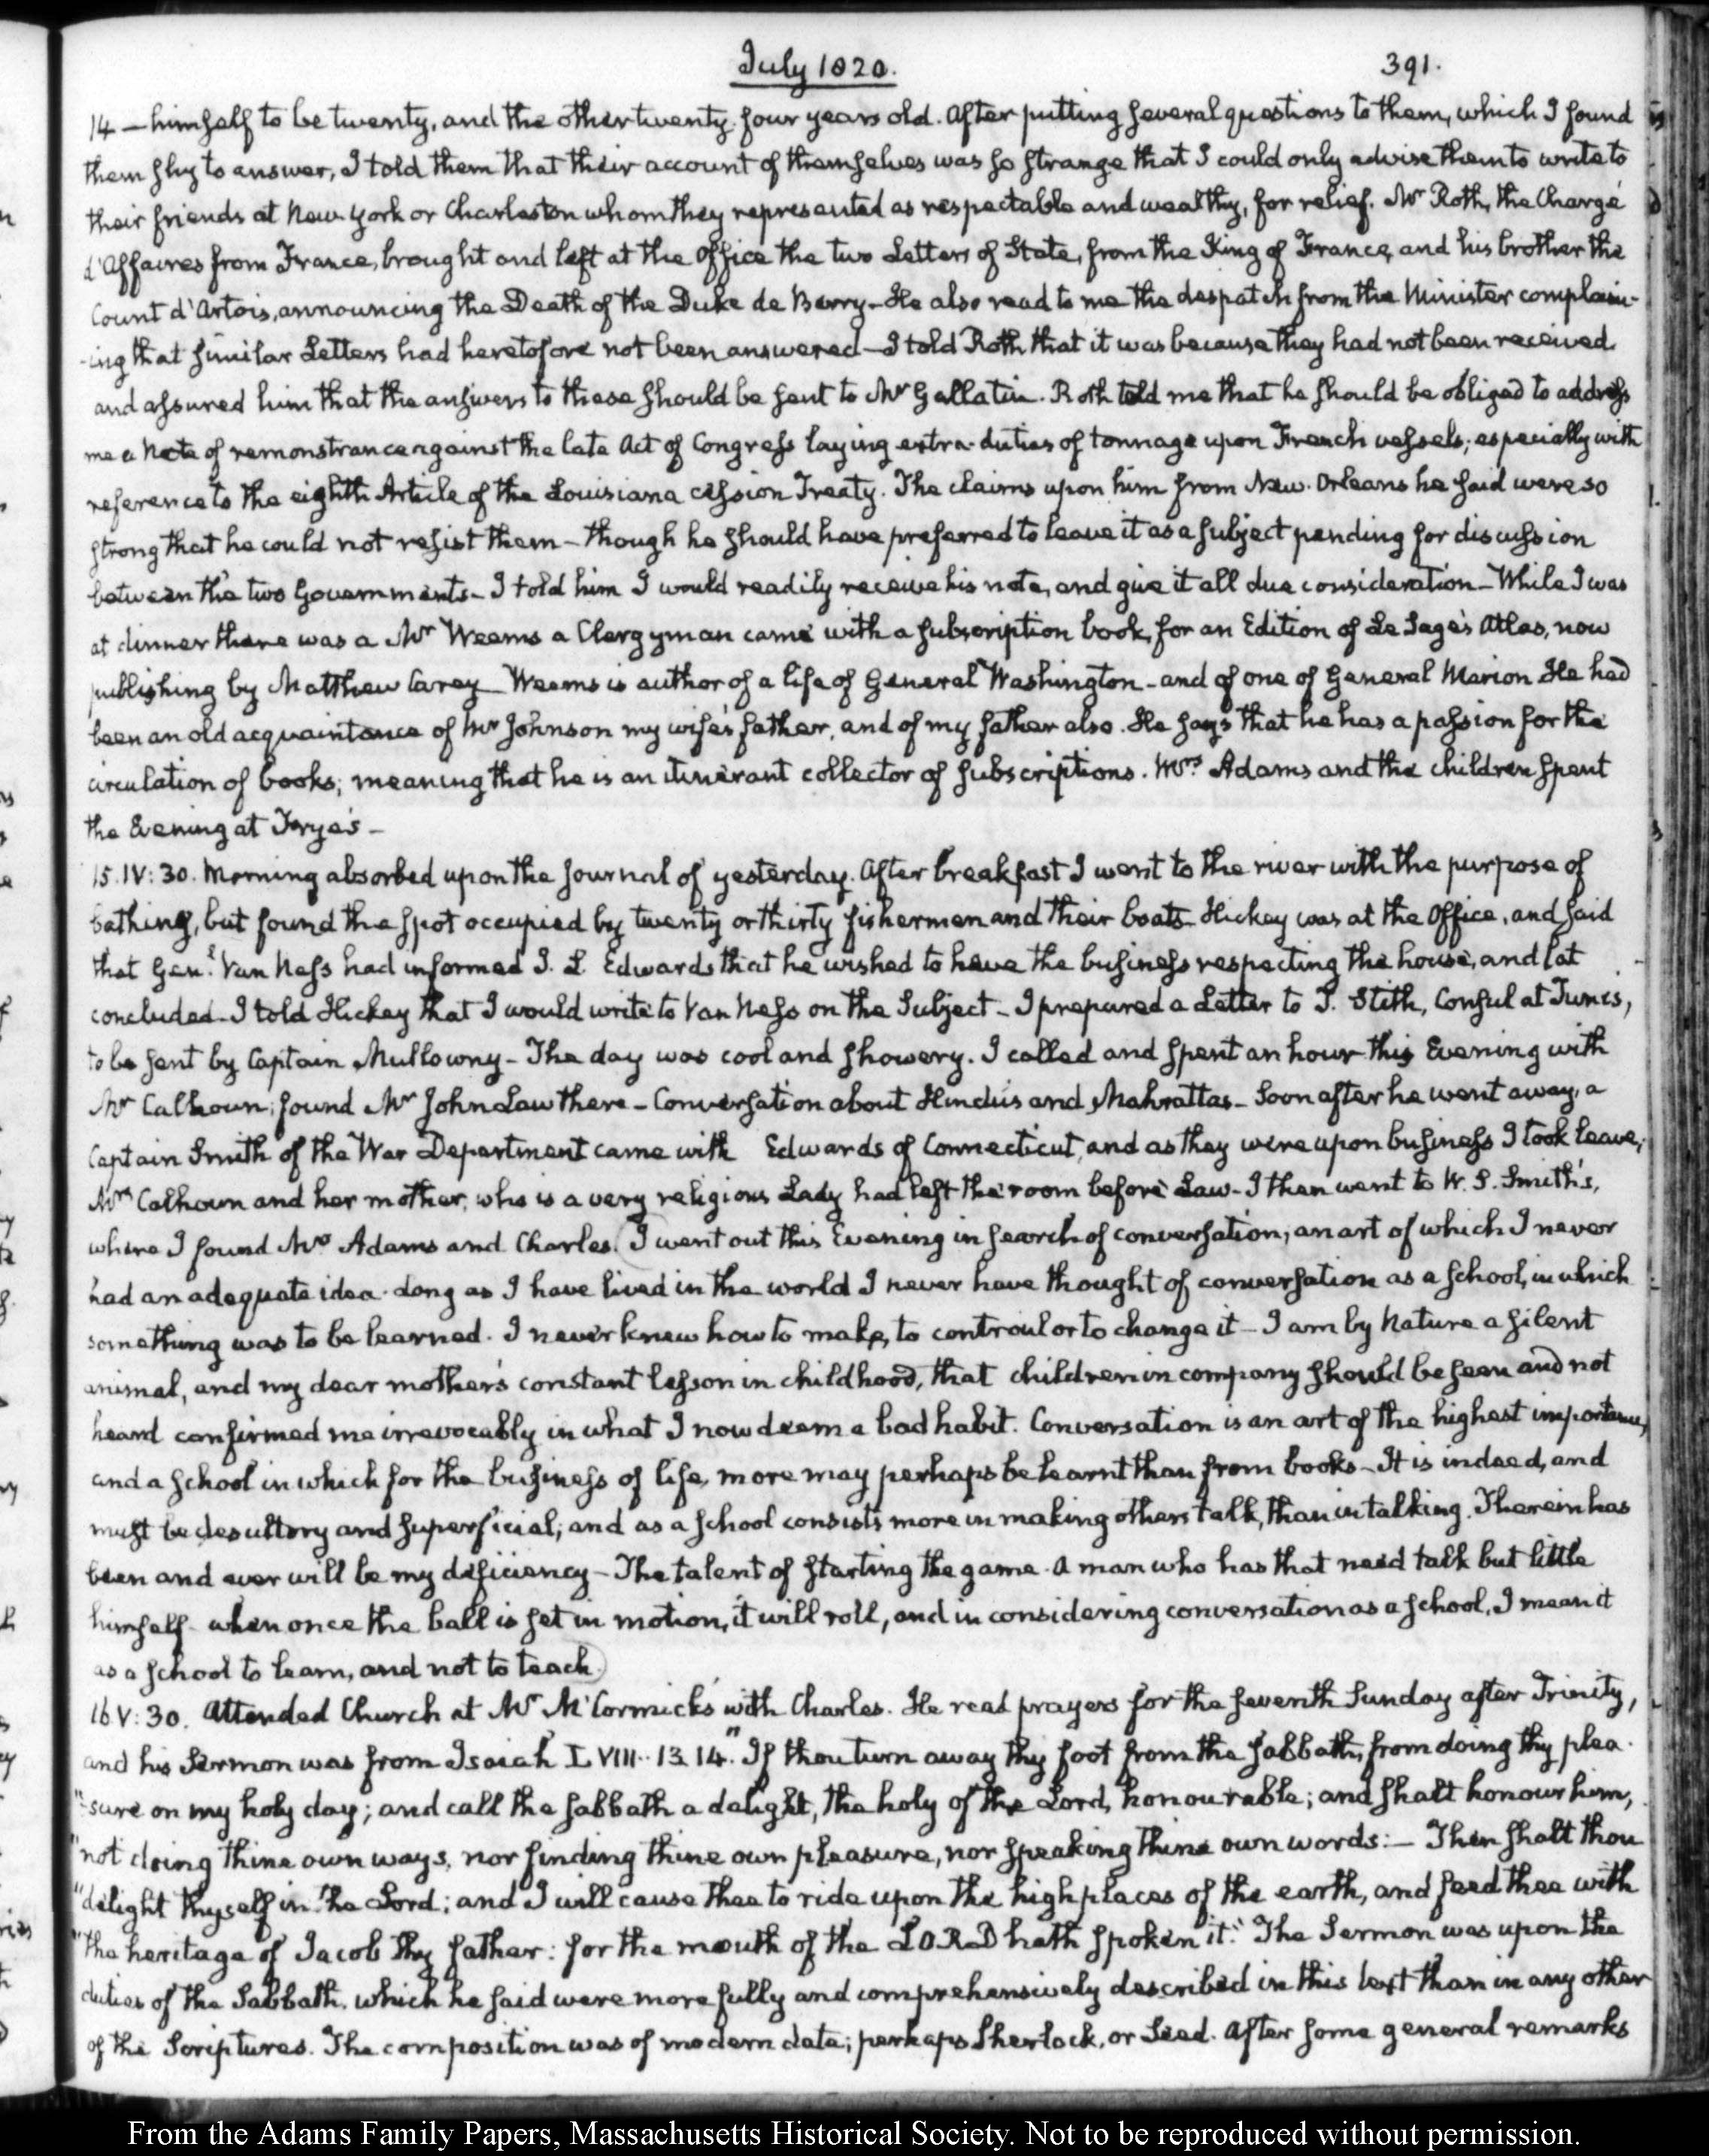 July 1820.
391.
14 — himself to be twenty, and the other twenty four years old. After putting several questions to them, which I found
them shy to answer, I told them that their account of themselves was so strange that I could only advise them to write to
their friends at New York or Charleston whom they represented as respectable and wealthy, for relief. Mr Roth, the Chargé
d'Affaires from France, brought and left at the Office the two Letters of State, from the King of France, and his brother the
Count d'Artois, announcing the Death of the Duke de Berry — He also read to me the despatch from the Minister complain-
-ing that similar Letters had heretofore not been answered — I told Roth that it was because they had not been received
and assured him that the answers to these should be sent to Mr Gallatin. Roth told me that he should be obliged to address
me a Note of remonstrance against the late Act of Congress laying extra-duties of tonnage upon French vessels; especially with
reference to the eighth Article of the Louisiana cession Treaty. The claims upon him from New-Orleans he said were so
strong that he could not resist them — though he should have preferred to leave it as a subject pending for discussion
between the two Governments — I told him I would readily receive his note, and give it all due consideration — While I was
at dinner there was a Mr Weems a Clergyman came with a subscription book, for an Edition of Le Sage's Atlas, now
publishing by Matthew Carey — Weems is author of a life of General Washington — and of one of General Marion He had
been an old acquaintance of Mr Johnson my wife's father, and of my father also. He says that he has a passion for the
circulation of books; meaning that he is an itinerant collector of subscriptions. Mrs Adams and the children spent
the Evening at Frye's —
15. IV: 30. Morning absorbed upon the journal of yesterday. After breakfast I went to the river with the purpose of
bathing, but found the spot occupied by twenty or thirty fishermen and their boats — Hickey was at the Office, and said
that Genl Van Ness had informed J. L. Edwards that he wished to have the business respecting the house, and lot
concluded — I told Hickey that I would write to Van Ness on the Subject — I prepared a Letter to T. Stith, Consul at Tunis,
to be sent by Captain Mullowny — The day was cool and showery. I called and spent an hour this Evening with
Mr Calhoun; found Mr John Law there — Conversation about Hindus and Mahrattas — Soon after he went away, a
Captain Smith of the War Department came with Edwards of Connecticut, and as they were upon business I took leave,
Mrs Calhoun and her mother, who is a very religious Lady had left the room before Law — I then went to W. S. Smith's,
where I found Mrs Adams and Charles. (I went out this Evening in search of conversation, an art of which I never
had an adequate idea. Long as I have lived in the world I never have thought of conversation as a school, in which
something was to be learned. I never knew how to make, to controul or to change it — I am by Nature a silent
animal, and my dear mother's constant lesson in childhood, that children in company should be seen and not
heard confirmed me irrevocably in what I now deem a bad habit. Conversation is an art of the highest importance,
and a school in which for the business of life, more may perhaps be learnt than from books — It is indeed, and
must be desultory and superficial; and as a school consists more in making others talk, than in talking. Therein has
been and ever will be my deficiency — The talent of starting the game. A man who has that need talk but little
himself. when once the ball is set in motion, it will roll, and in considering conversation as a school, I mean it
as a school to learn, and not to teach.)
16 V: 30. Attended Church at Mr McCormick's with Charles. He read prayers for the seventh Sunday after Trinity,
and his Sermon was from Isaiah LVIII. 13. 14. "If thou turn away thy foot from the sabbath, from doing thy plea-
"-sure on my holy day; and call the sabbath a delight, the holy of the Lord, honourable; and shalt honour him,
"not doing thine own ways, nor finding thine own pleasure, nor speaking thine own words: — Then shalt thou
"delight thyself in the Lord; and I will cause thee to ride upon the high places of the earth, and feed thee with
"the heritage of Jacob thy father: for the mouth of the LORD hath spoken it." The Sermon was upon the
duties of the Sabbath, which he said were more fully and comprehensively described in this text than in any other
of the Scriptures. The composition was of modern date; perhaps Sherlock, or Seed. After some general remarks
From the Adams Family Papers, Massachusetts Historical Society. Not to be reproduced without permission.